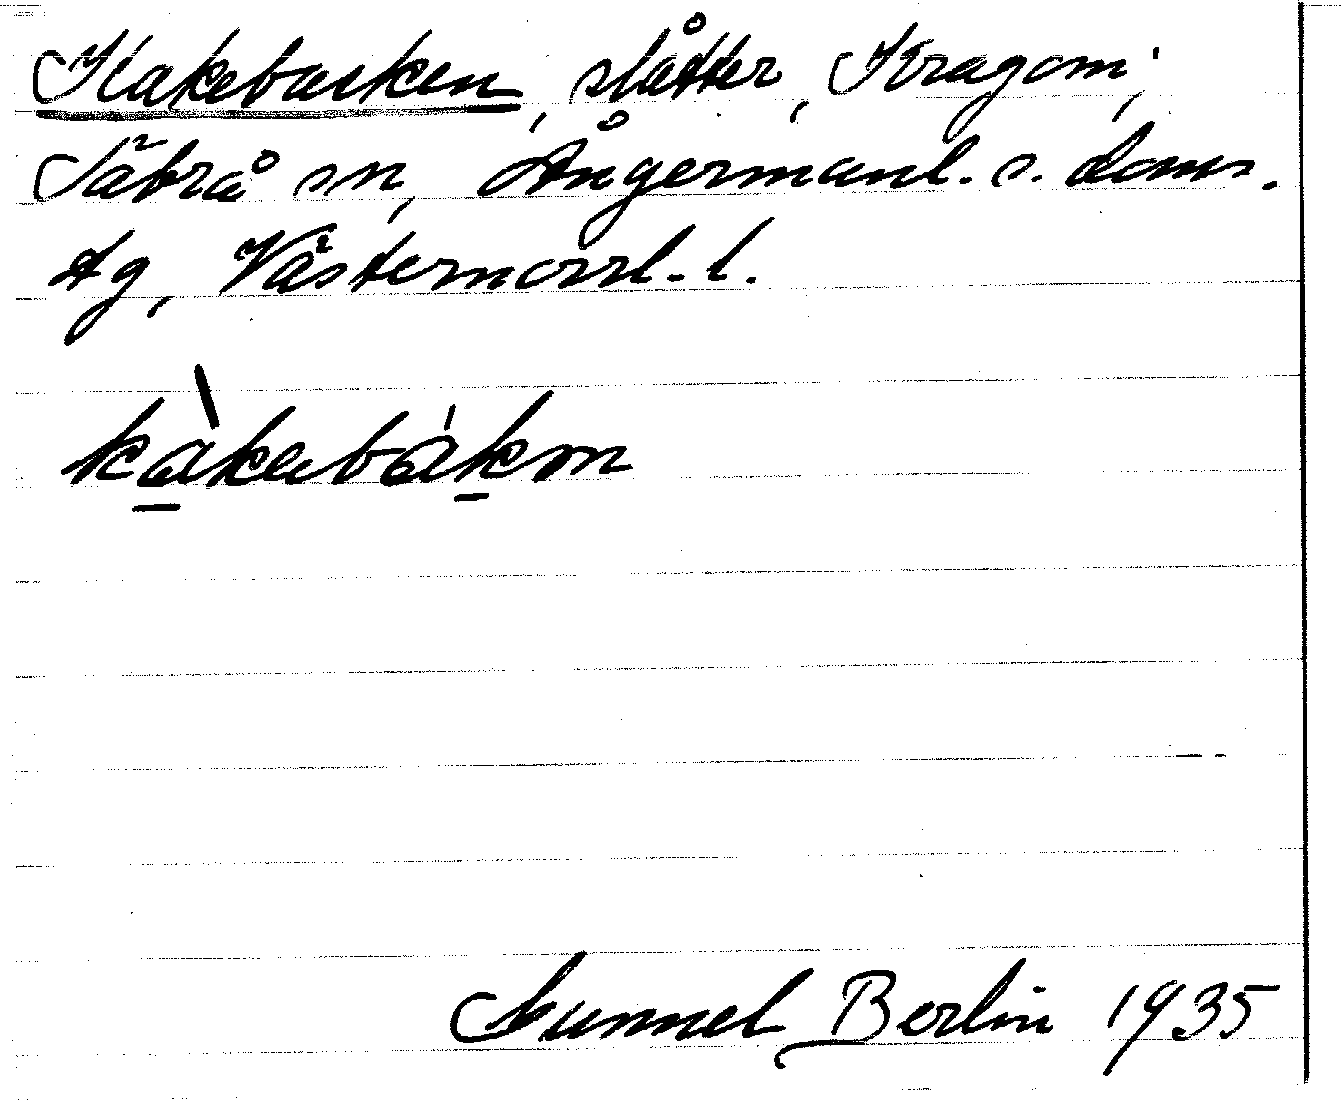 Kakebacken, slåtter, Kragom,
Säbrå sn, Ångermanl. s. doms.
tg, Västernorrl. l.
kàkebákm
Gunnel Berlin 1935